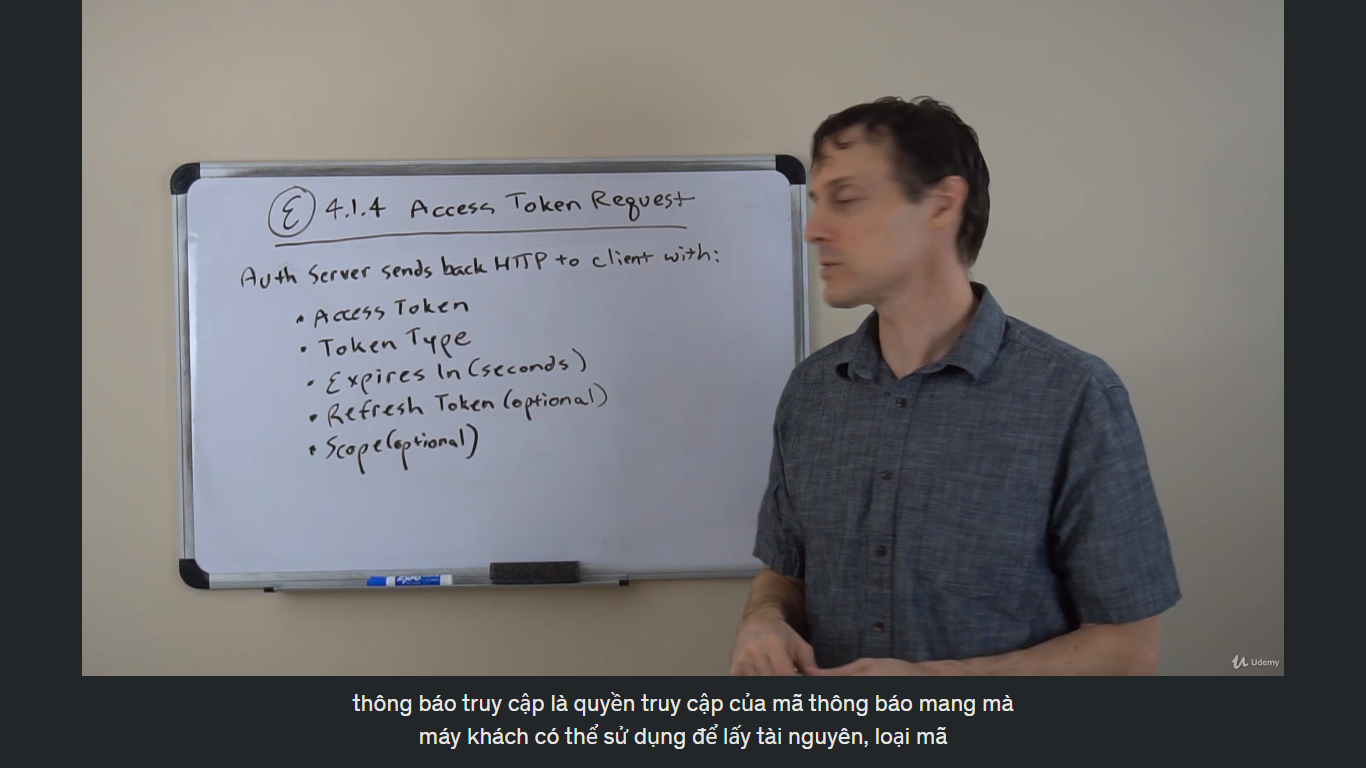 E 4.1.4 Access Token Request
Auth Server sends back HTTP to client with:
• Access Token
• Token Type
• Expires In (seconds)
• Refresh Token (optional)
• Scope (optional)
EXPO
Udemy
thông báo truy cập là quyền truy cập của mã thông báo mang mà
máy khách có thể sử dụng để lấy tài nguyên, loại mã